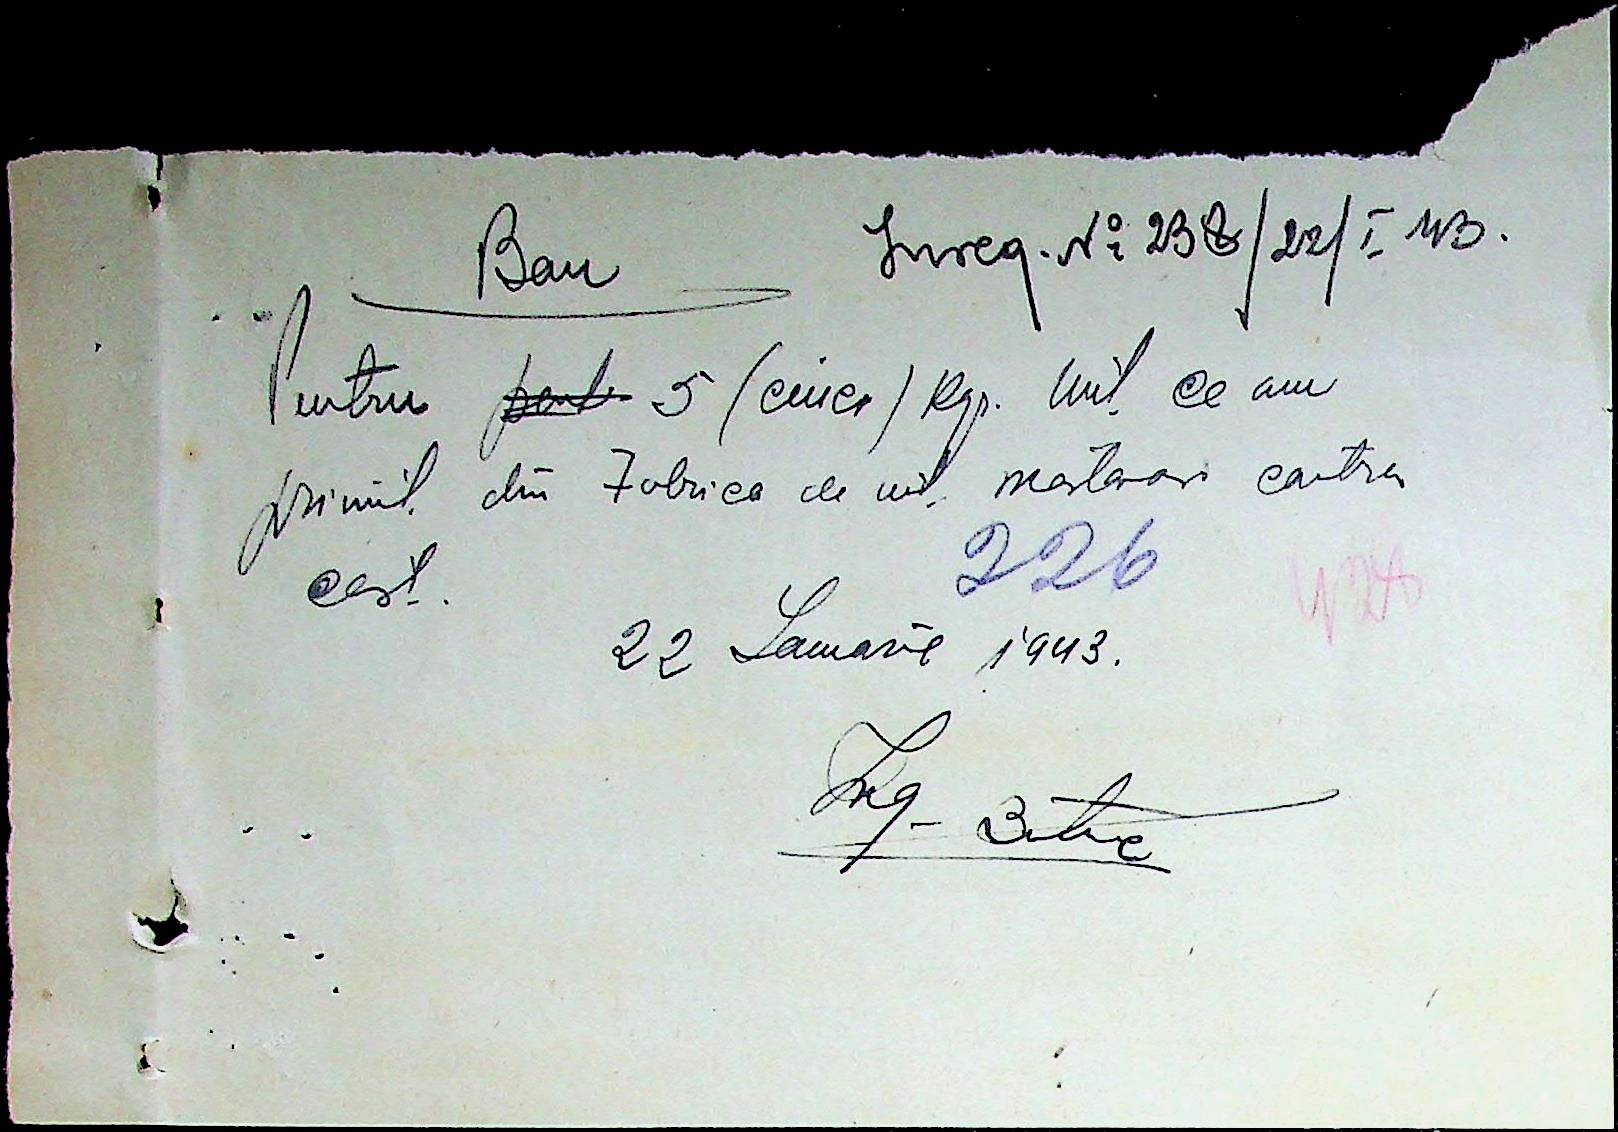 Bon Inreg. No 238/22/I 943.
Pentru 5 (cinci) Kgr. unt. ce am
primit din Fabrica de unt. contra
cost.
226
22 Ianuarie 1943.
Ing.